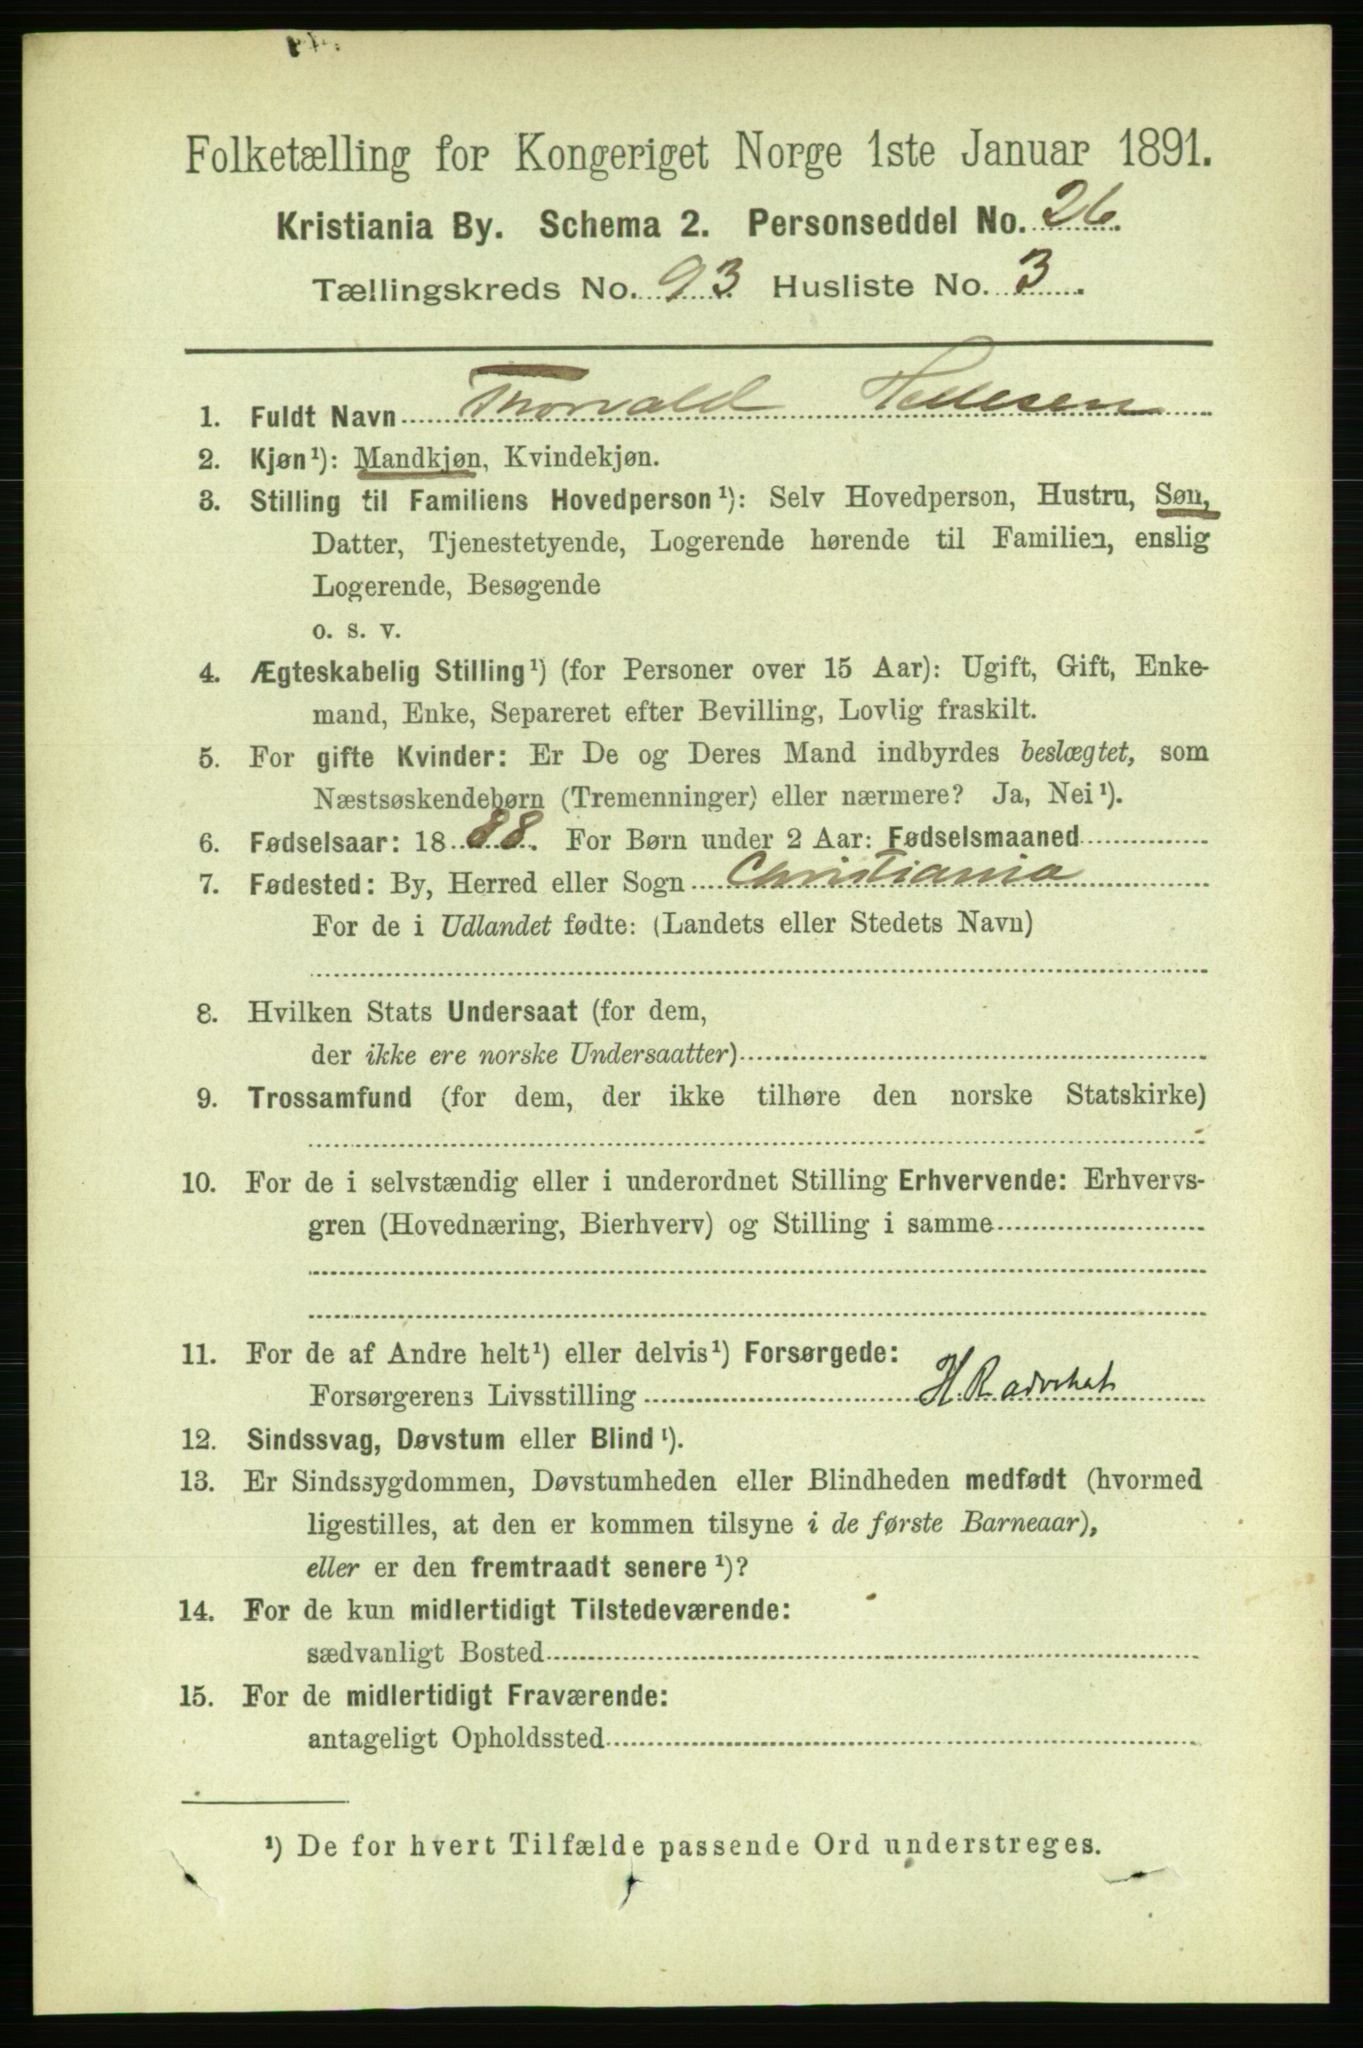 Folketælling for Kongeriget Norge 1ste Januar 1891.
Kristiania By. Schema 2. Personseddel No. 26.
Tællingskreds No. 93 Husliste No. 3.
1. Fuldt Navn Thorvald Hellesen
2. Kjøn¹): Mandkjøn, Kvindekjøn.
3. Stilling til Familiens Hovedperson¹): Selv Hovedperson, Hustru, Søn,
Datter, Tjenestetyende, Logerende hørende til Familien, enslig
Logerende, Besøgende
o. s. v.
4. Ægteskabelig Stilling¹) (for Personer over 15 Aar): Ugift, Gift, Enke-
mand, Enke, Separeret efter Bevilling, Lovlig fraskilt.
5. For gifte Kvinder: Er De og Deres Mand indbyrdes beslægtet, som
Næstsøskendebørn (Tremenninger) eller nærmere? Ja, Nei¹).
6. Fødselsaar: 1888. For Børn under 2 Aar: Fødselsmaaned
7. Fødested: By, Herred eller Sogn Christiania
For de i Udlandet fødte: (Landets eller Stedets Navn)
8. Hvilken Stats Undersaat (for dem,
der ikke ere norske Undersaatter)
9. Trossamfund (for dem, der ikke tilhøre den norske Statskirke)
10. For de i selvstændig eller i underordnet Stilling Erhvervende: Erhvervs-
gren (Hovednæring, Bierhverv) og Stilling i samme
11. For de af Andre helt¹) eller delvis¹) Forsørgede:
Forsørgerens Livsstilling H.R. advokat
12. Sindssvag, Døvstum eller Blind¹).
13. Er Sindssygdommen, Døvstumheden eller Blindheden medfødt (hvormed
ligestilles, at den er kommen tilsyne i de første Barneaar),
eller er den fremtraadt senere¹)?
14. For de kun midlertidigt Tilstedeværende:
sædvanligt Bosted
15. For de midlertidigt Fraværende:
antageligt Opholdssted
¹) De for hvert Tilfælde passende Ord understreges.